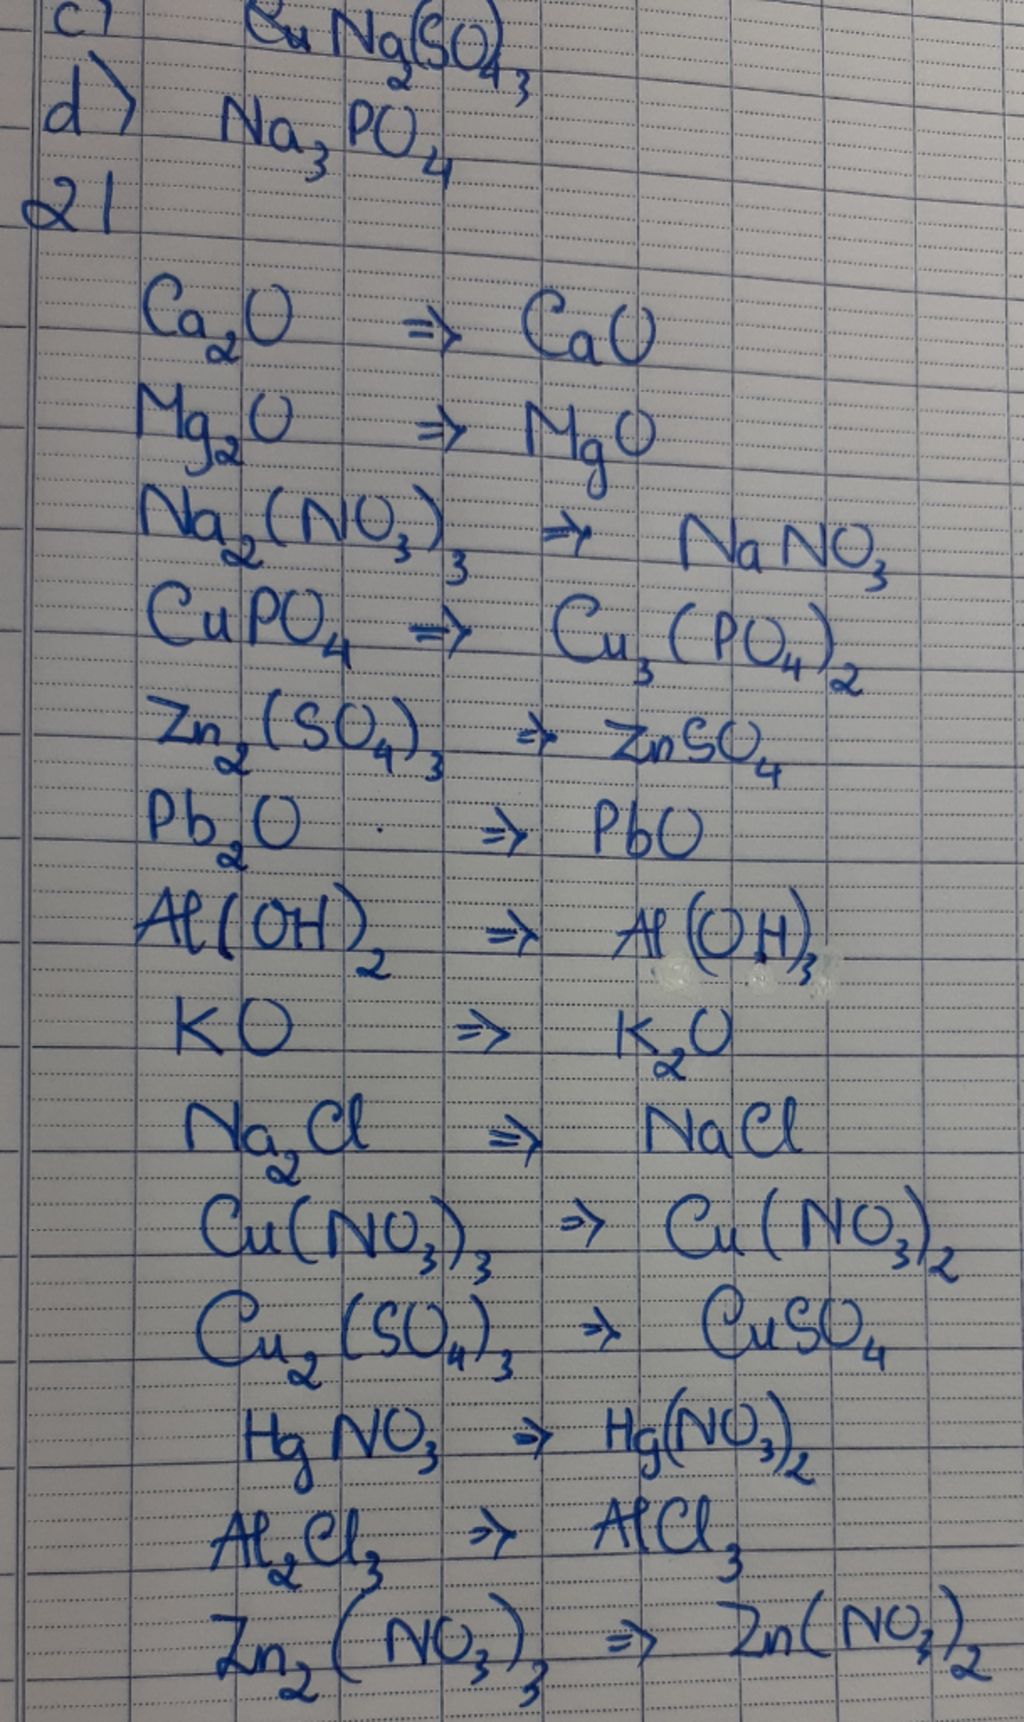 c) Na2(SO4)3
d) Na3PO4
2)
Ca2O => CaO
Mg2O => MgO
Na2(NO3)3 => NaNO3
CuPO4 => Cu3(PO4)2
Zn2(SO4)3 => ZnSO4
Pb2O => PbO
Al(OH)2 => Al(OH)3
KO => K2O
Na2Cl => NaCl
Cu(NO3)3 => Cu(NO3)2
Cu2(SO4)3 => CuSO4
HgNO3 => Hg(NO3)2
Al2Cl3 => AlCl3
Zn2(NO3)3 => Zn(NO3)2